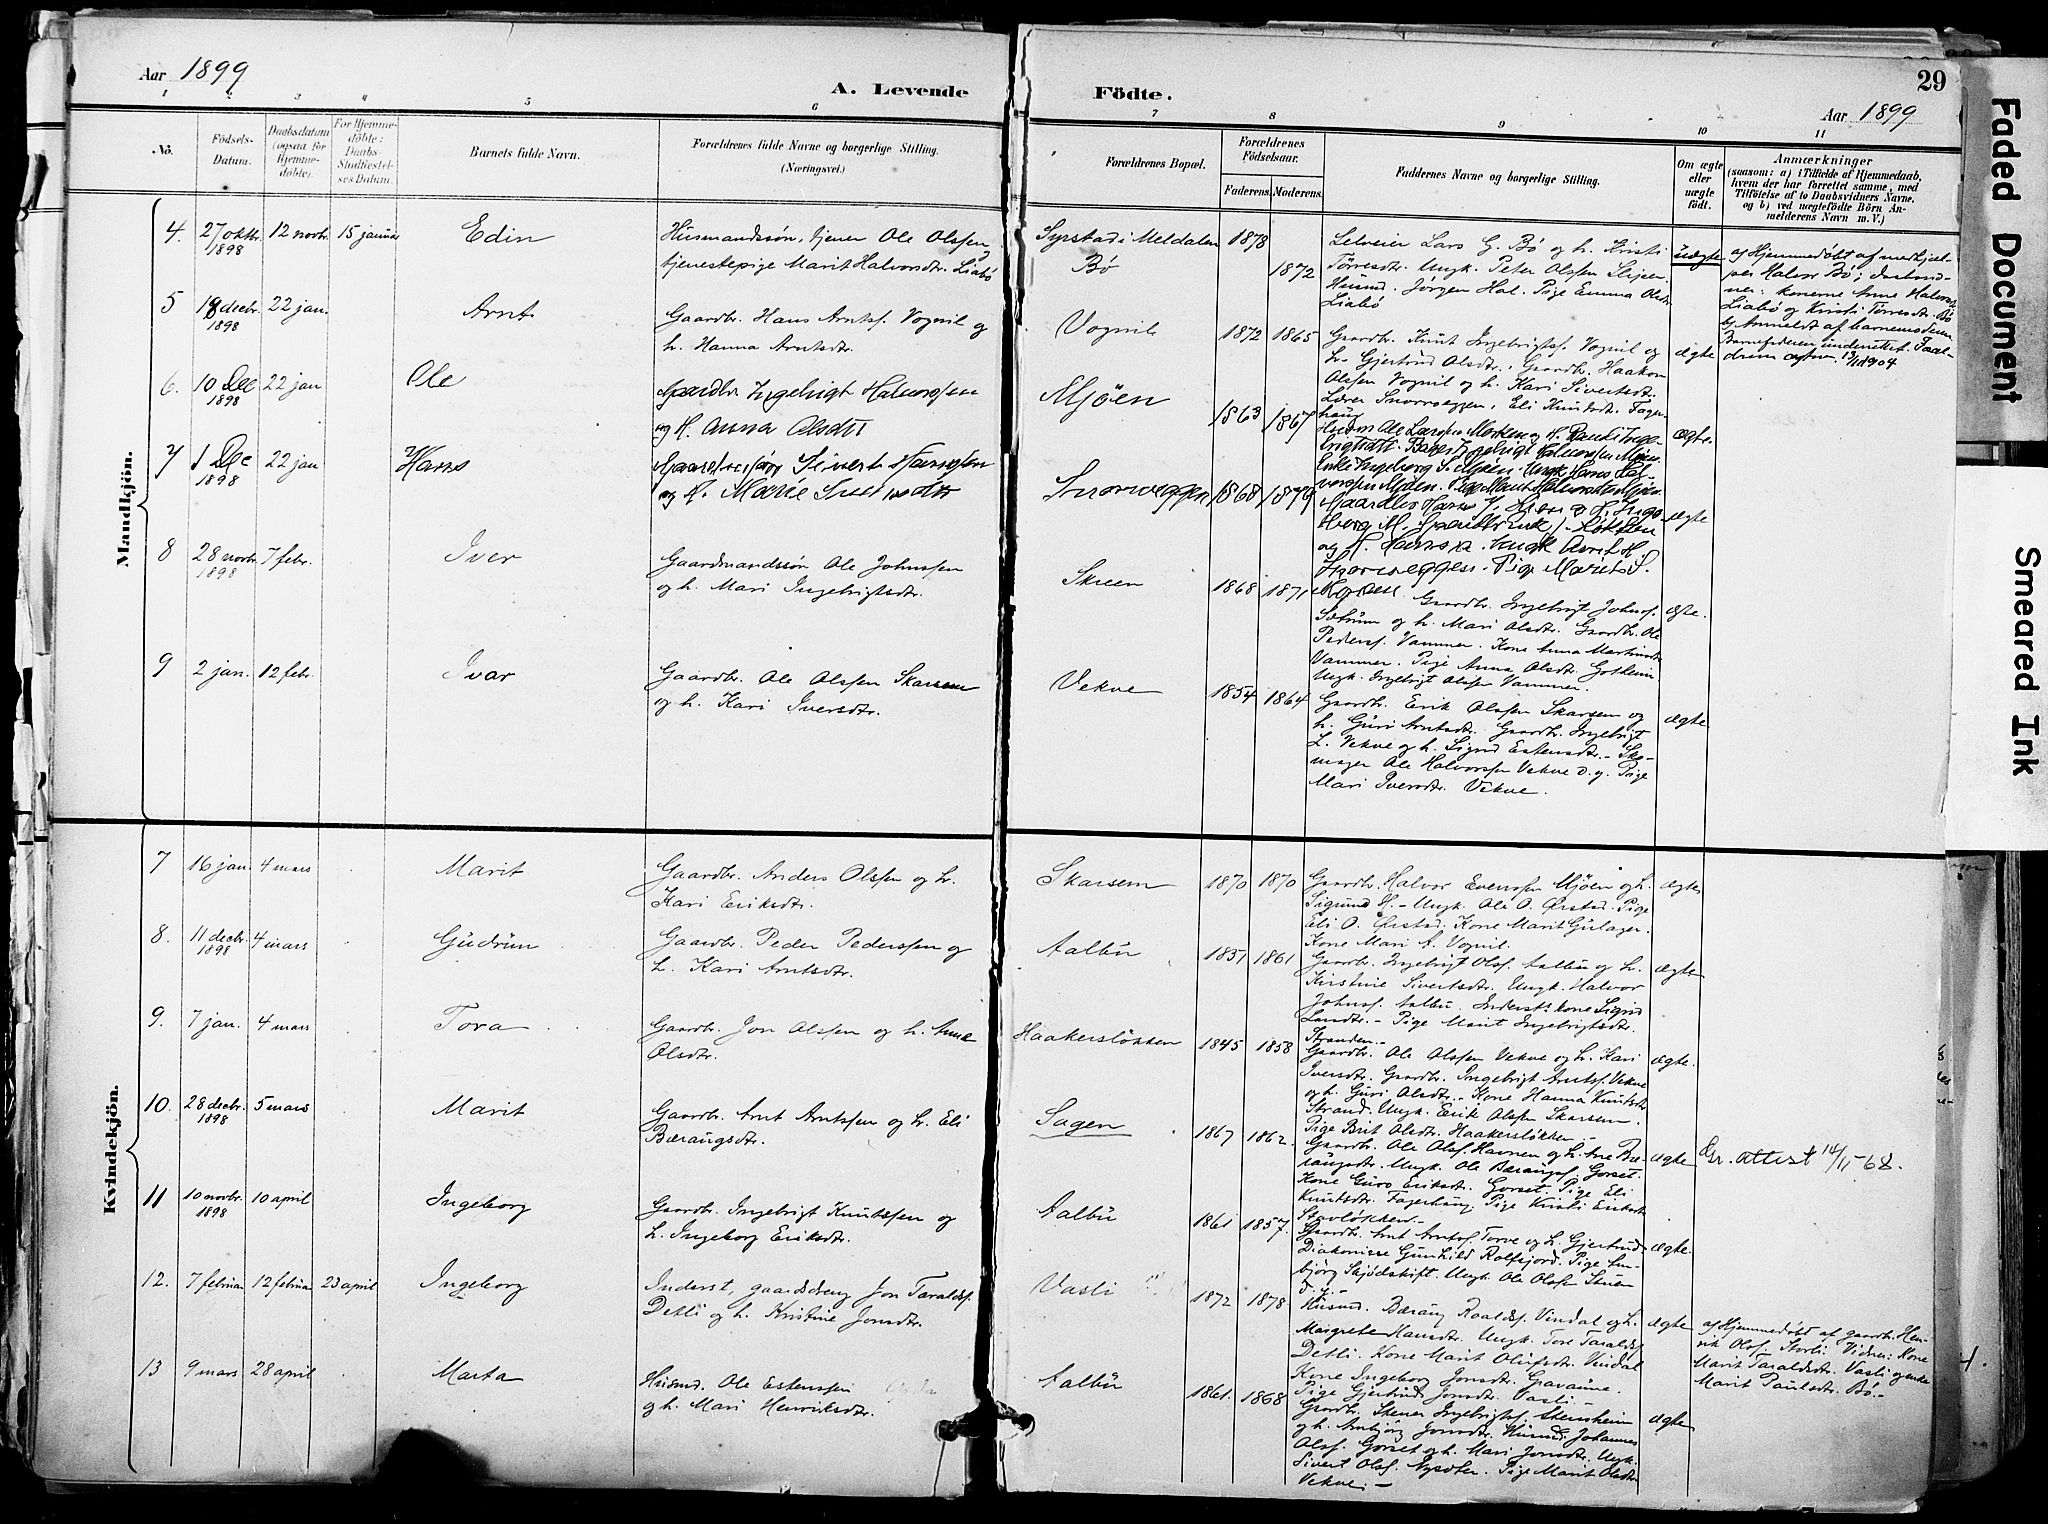 Aar 1899
A. Levende
Födte.
29
Aar 1899
1 2 3 4 5 6 7 8 9 10 11
No.
Födsels-
Datum.
Daabsdatum
(ogsaa for
Hjemme-
döbte).
For Hjemme-
döbte:
Daabs-
Stadfæstel-
ses Datum.
Barnets fulde Navn.
Forældrenes fulde Navne og borgerlige Stilling.
(Næringsvei.)
Forældrenes Bopæl.
Forældrenes
Födselsaar.
Faderens. Moderens.
Faddernes Navne og borgerlige Stilling.
Om ægte
eller
uægte
födt.
Anmærkninger
(saasom: a) i Tilfælde af Hjemmedaab,
hvem der har forrettet samme, med
Tilföielse af to Daabsvidners Navne,
og b) ved uægtefödte Börn An-
melderens Navn m. V.)
Mandkjön.
4. 27 oktbr. 1898 12 novbr. 15 januar Edin
Husmandssøn, tjener Ole Olsen og
tjenestepige Marit Halvorsdtr. Liabø
Syrstad i Meldalen
Bø
1878
1872
Selveier Lars G. Bø og h. Kristi
Tørresdtr. Ungk. Peter Olsen
Husmd. Jørgen Hal. Pige Emma Olsdtr.
Liabø
uægte
a) Hjemmedøbt af
Halvor Bø;
konerne Anne Halvorsdtr.
Liabø og Kirsti Torresdtr. Bø
b) Anmeldt af barnemoderen
Barnefaderen underrettet.
5 18 decbr. 1898 22 jan. Arnt
Gaardbr. Hans Arntsf. Vognil og
h. Hanna Arntsdtr.
Vognil
1872 1865
Gaardbr. Knut Ingebrigtsf. Vognil og
h. Gjertrud Olsdtr., Gaardbr. Haakon
Olsen Vognil og h. Kari Sivertsdtr.
Lærer Snorroeggen, Eli Knutsdtr. Fager-
haug
ægte
6. 10 Dec 1898 22 jan Ole
Gaardbr Ingebrigt Halvorsen
og H. Anna Olsdtr
Mjöen
1863 1867
ægte.
7 1 Dec 1898 22 jan Hans
Gaardmansøn Sivert Hansen
og H. Marie
Snorroeggen
1868 1879
ægte
8 28 novbr. 1898 7 febr. Iver
Gaardmandssøn Ole Johnsen
og h. Mari Ingebrigtsdtr.
Skeen
1868 1871
Gaardbr. Ingebrigt Johnsf.
Sætrum og h. Mari Olsdtr. Gaardbr. Ole
Pedersf. Vammer. Kone Anna Martinsdtr
Vammer. Pige Anna Olsdtr. Gotheim
Ungk. Ingebrigt Olsen Vammer.
ægte.
9 2 jan. 12 febr. Ivar
Gaardbr. Ole Olsen Skarsem
og h. Kari Iversdtr.
Vekve
1854 1864
Gaardbr. Erik Olsen Skarsem og
h. Guri Arntsdtr. Gaardbr. Ingebrigt
L. Vekve og h. Sigrid Estensdtr. - Sko-
mager Ole Halvorsen Vekve o. g. Pige
Mari Iversdtr. Vekve.
ægte
Kvindekjön.
7 16 jan. 4 mars Marit
Gaardbr. Anders Olsen og h.
Kari Eriksdtr.
Skarsem
1870 1870
Gaardbr. Halvor Evensen Mjøen og h.
Sigrund H. - Ungk. Ole O. Ørstad. Pige
Eli O. Ørstad. Kone Marit Gulager.
Kone Mari A. Vognil.
ægte
8. 11 decbr. 1898 4 mars Gudrun
Gaardbr. Peder Pedersen og
h. Kari Arntsdtr.
Aalbu
1851 1861
Gaardbr. Ingebrigt Olsf. Aalbu og h.
Kirstine Sivertsdtr. Ungk. Halvor
Johnsf. Aalbu. Inderst. kone Sigrid
Larsdtr. - Pige Marit Ingebrigtsdtr.
Stranden.-
ægte
9. 7 jan. 4 mars Tora
Gaardbr. Jon Olsen og h. Anne
Olsdtr.
Haakersløkken
1845 1858
Gaardbr. Ole Olsen Vekve og h. Kari
Iversdtr. Gaardbr. Ingebrigt Arntsf. Vekve
og h. Guri Olsdtr. - Kone Hanna Knutsdtr
Strand. Ungk. Erik Olsen Skarsem.
Pige Brit Olsdtr. Haakersløkken. -
ægte.
10. 28 decbr. 1898 5 mars Marit
Gaardbr. Arnt Arntsen og h. Eli
Bærangsdtr.
Sagen
1867 1862.
Gaardbr. Ole Olsf. Havnen og h. Ane Bæ-
rangsdtr. Ungk. Ole Bærangsf. Gorset.
Kone Guro Eriksdtr. Gorset. Pige Eli
Knutsdtr. Fagerhaug. Pige Kirsti Eriksdtr.
Stavløkken -
ægte
Gr. attest 14/11-68.
11 10 novbr. 1898 10 april Ingeborg
Gaardbr. Ingebrigt Knutsen og
h. Ingeborg Eriksdtr.
Aalbu
1861 1857.
Gaardbr. Arnt Arntsf. Torve og h. Gjertrud
Diakonisse Gunhild Rolfsjord. Pige In-
bjørg Skjødskift. Ungk. Ole Olsen Stuen
d. y. -
ægte.
12. 7 februar 12 februar 23 april Ingeborg
Inderst, gaardsdreng Jon Taraldsf.
Detli og h. Kristine Jonsdtr.
Vasli
1872 1878
Husmd. Bærang Roaldsf. Vindal og h.
Margrete Hansdtr. Ungk. Tore Taraldsf.
Detli. Kone Marit Olufsdtr. Vindal
Kone Ingeborg Jonsdtr. Gravaune.
Pige Gjertrud Jonsdtr. Vasli -
ægte
a) Hjemmedøbt af gaardbr. Hen-
rik Olsf. Storli. Vidner: Kone
Marit Taraldsdtr. Vasli og enke
Marit Paulsdtr. Bö.-
13 9 mars 28 april Marta
Husmd. Ole Estensen
og h. Mari Henriksdtr.
Aalbu
1861. 1868
Gaardbr. Stener Ingebrigtsf. Stensheim
og h. Arnbjørg Jonsdtr. Husmd. Johannes
Olsf. Gorset og h. Mari Jonsdtr. Ungk.
Sivert Olsf. Nysæter. Pige Marit Olsdtr.
Vekve. -
ægte
Faded Document
Smeared Ink